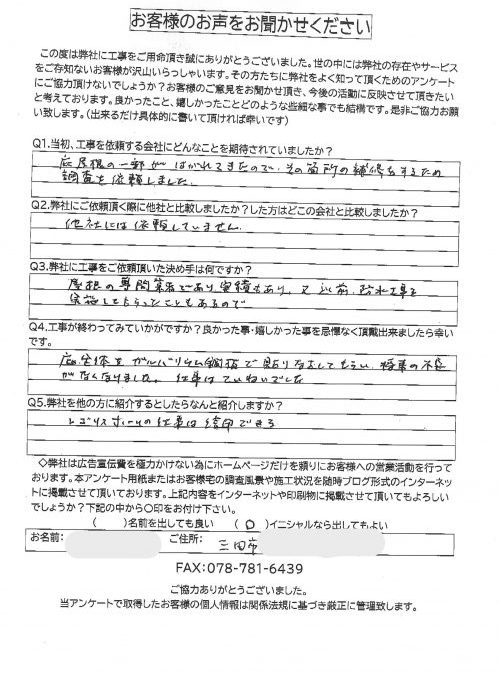 お客様のお声をお聞かせください
この度は弊社に工事をご用命頂き誠にありがとうございました。世の中には弊社の存在やサービス
をご存知ないお客様が沢山いらっしゃいます。その方たちに弊社をよく知って頂くためのアンケート
にご協力頂けないでしょうか？お客様のご意見をお聞かせ頂き、今後の活動に反映させて頂きたい
と考えております。良かったこと、嬉しかったことどのような些細な事でも結構です。是非ご協力お願
い致します。（出来るだけ具体的に書いて頂ければ幸いです）
Q1.当初、工事を依頼する会社にどんなことを期待されていましたか？
庇屋根の一部がはがれてきたので、その箇所の補修をするため
調査を依頼しました
Q2.弊社にご依頼頂く際に他社と比較しましたか？した方はどこの会社と比較しましたか？
他社には依頼していません
Q3.弊社に工事をご依頼頂いた決め手は何ですか？
屋根の専門業者であり、実績もあり、又以前、防水工事を
実施してもらったこともあるので
Q4.工事が終わってみていかがですか？良かった事・嬉しかった事を忌憚なく頂戴出来ましたら幸い
です。
庇全体をガルバリウム鋼板で貼りなおしてもらい、将来の不安
がなくなりました。仕事はていねいでした
Q5.弊社を他の方に紹介するとしたらなんと紹介しますか？
の仕事は信用できる
◇弊社は広告宣伝費を極力かけない為にホームページだけを頼りにお客様への営業活動を行って
おります。本アンケート用紙またはお客様宅の調査風景や施工状況を随時ブログ形式のインターネッ
トに掲載させて頂いております。上記内容をインターネットや印刷物に掲載させて頂いてもよろしい
でしょうか？下記の中から〇印をお付け下さい。
（　　）名前を出しても良い　（ 〇 ）イニシャルなら出してもよい
お名前：　ご住所：　三田市
FAX:078-781-6439
ご協力ありがとうございました。
当アンケートで取得したお客様の個人情報は関係法規に基づき厳正に管理致します。